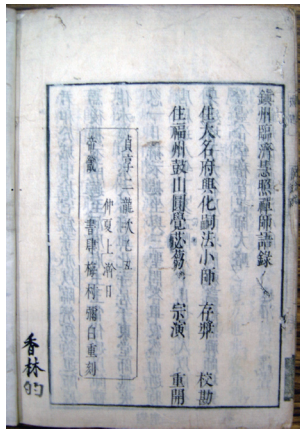 鎮州臨濟慧照禪師語錄
住大名府興化嗣法小師　存奬　校勘
住福州鼓山圓覺苾芻　宗演　重開
貞享二龍次乙丑
仲夏上澣日
書肆　梅村彌白重刻
香林的